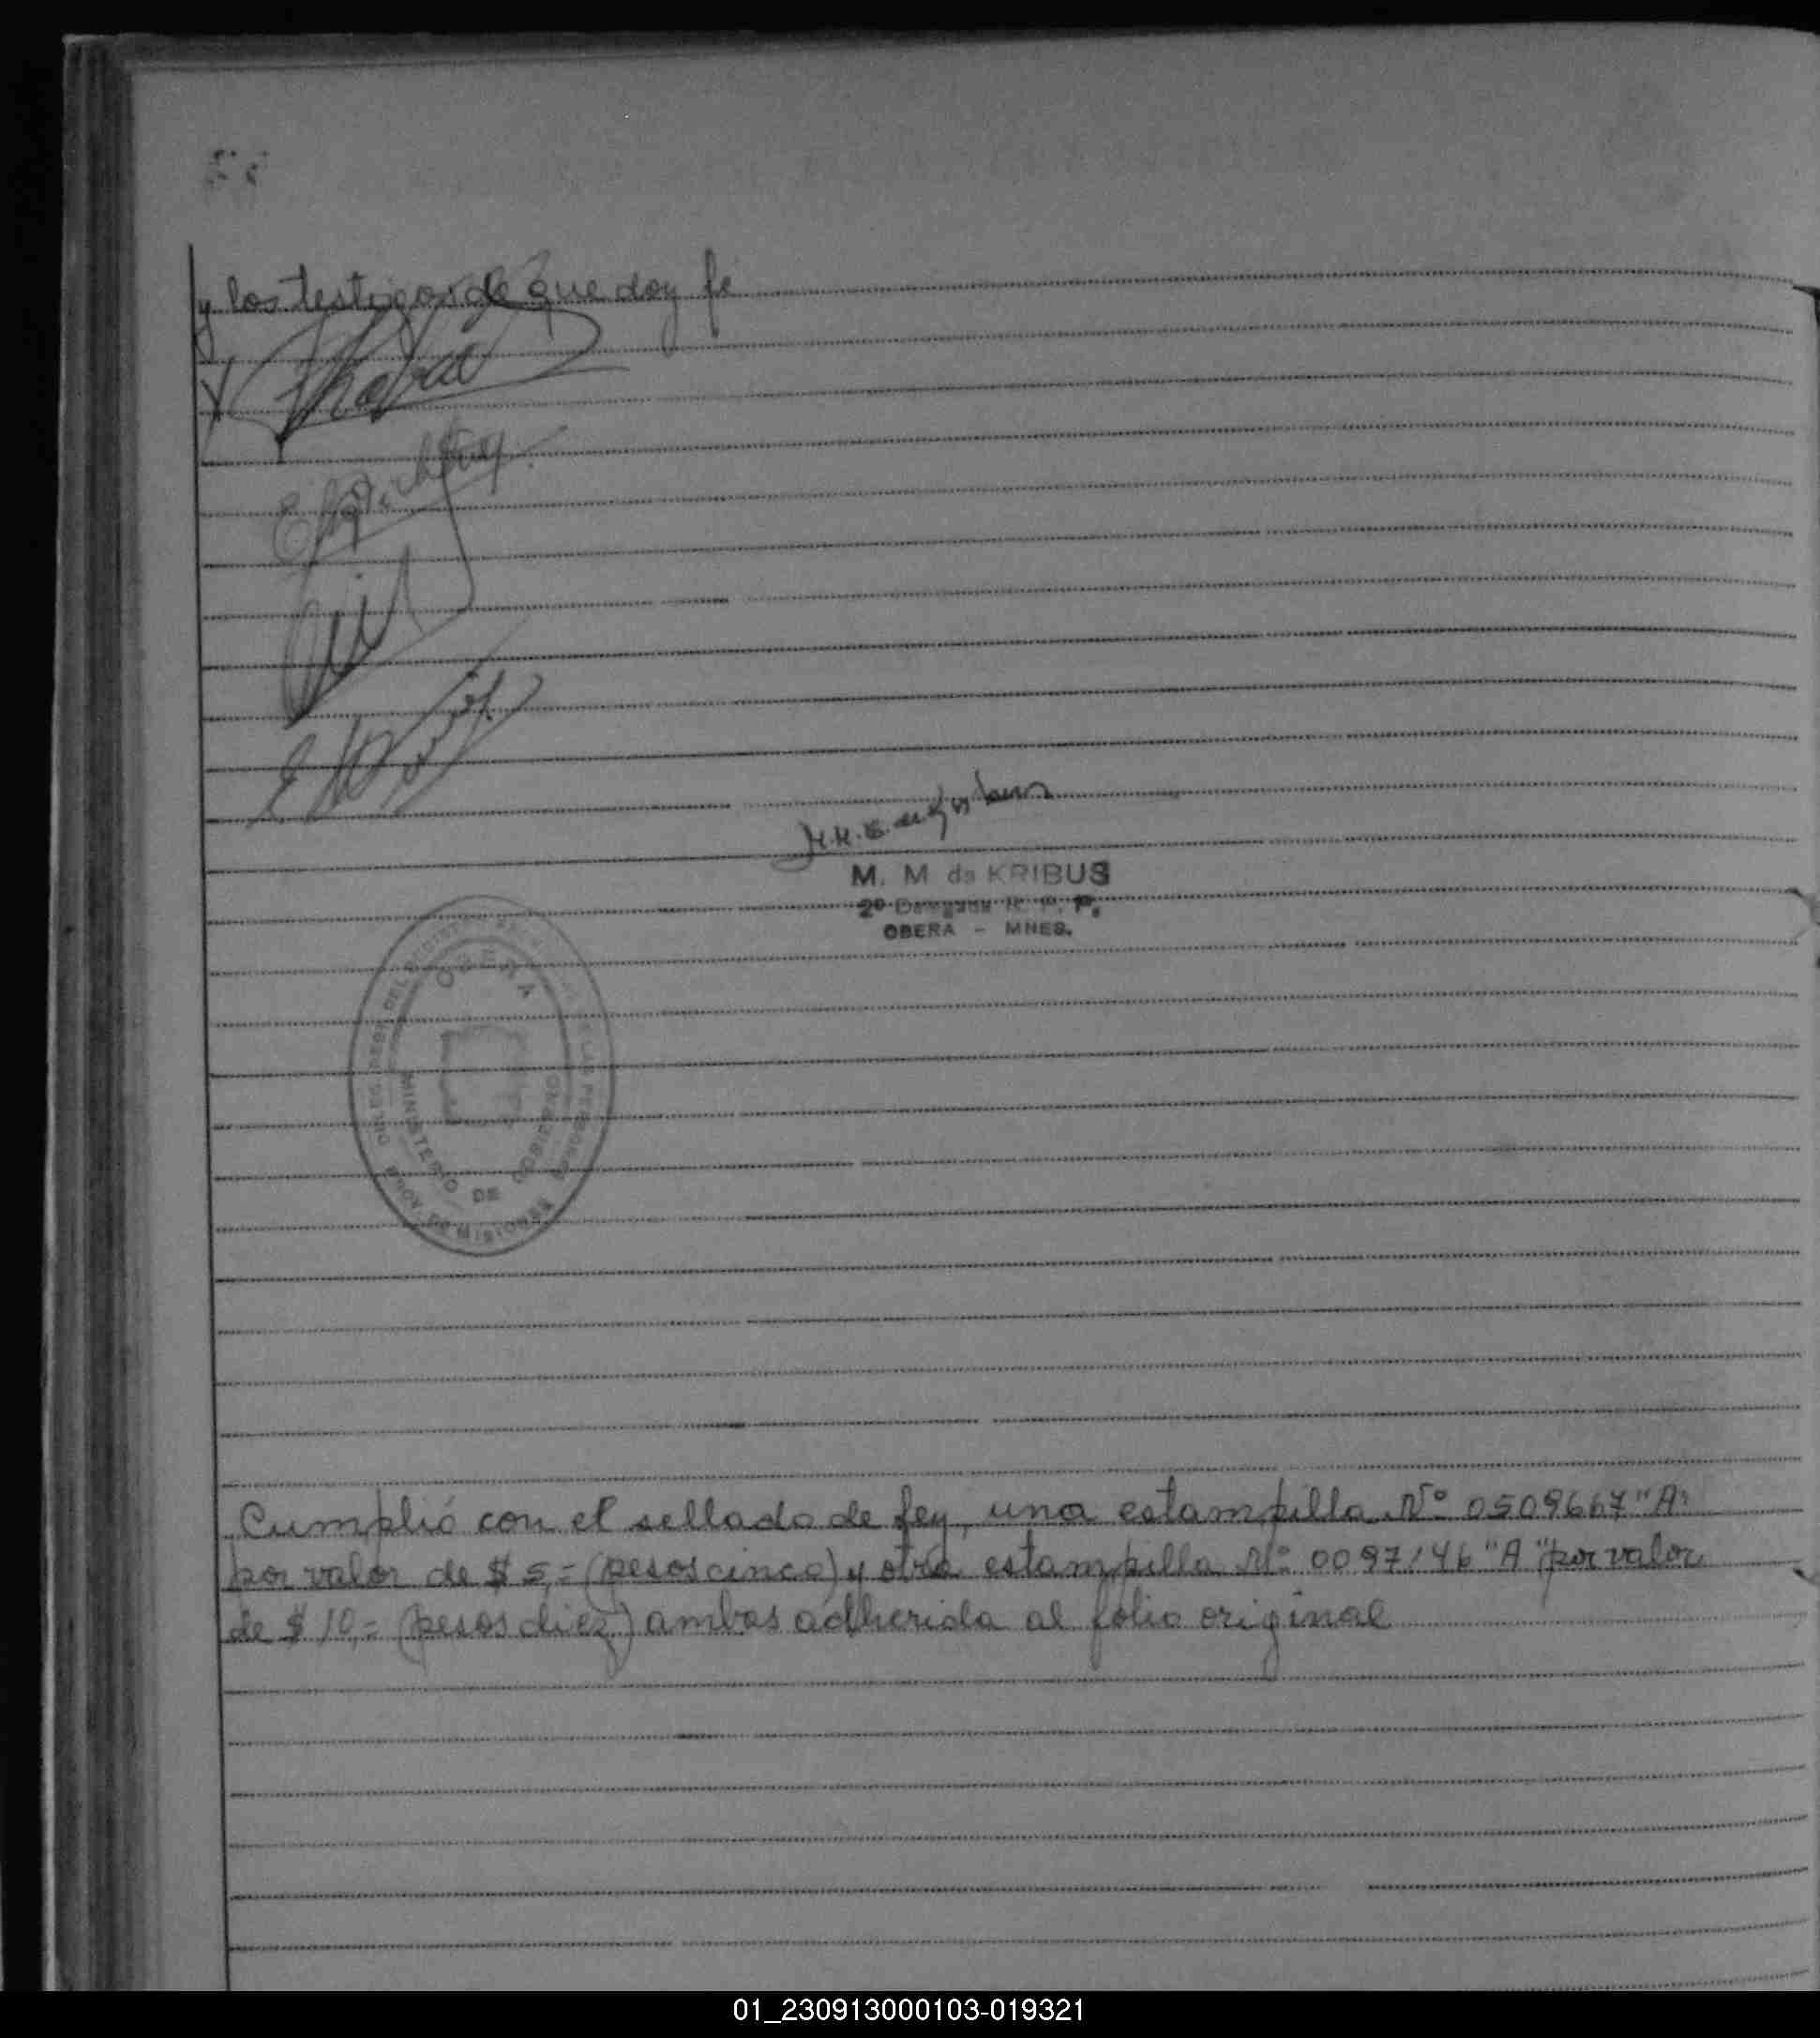 y los testigos de que doy fe
M. M de KRIBUS
2º Delegada R. P. P.
OBERA - MNES.
OBERA
MINISTERIO DE GOBIERNO
Cumplió con el sellado de ley, una estampilla Nº 0509667 "A"
por valor de $ 5,= (pesos cinco) y otra estampilla Nº 0097146 "A" por valor
de $ 10,= (pesos diez) ambas adherida al folio original
01_230913000103-019321